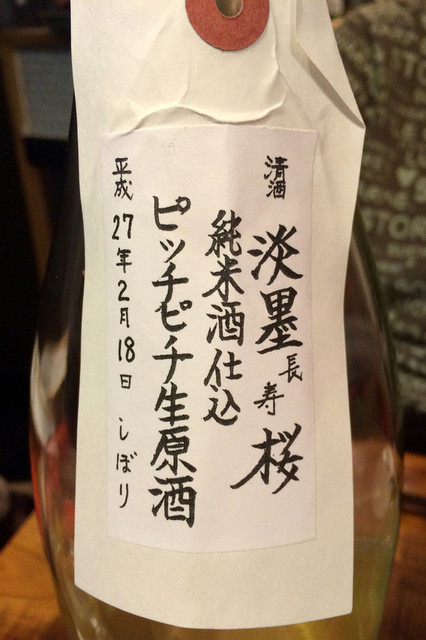 清酒 淡墨長寿桜
純米酒仕込
ピッチピチ生原酒
平成27年2月18日 しぼり